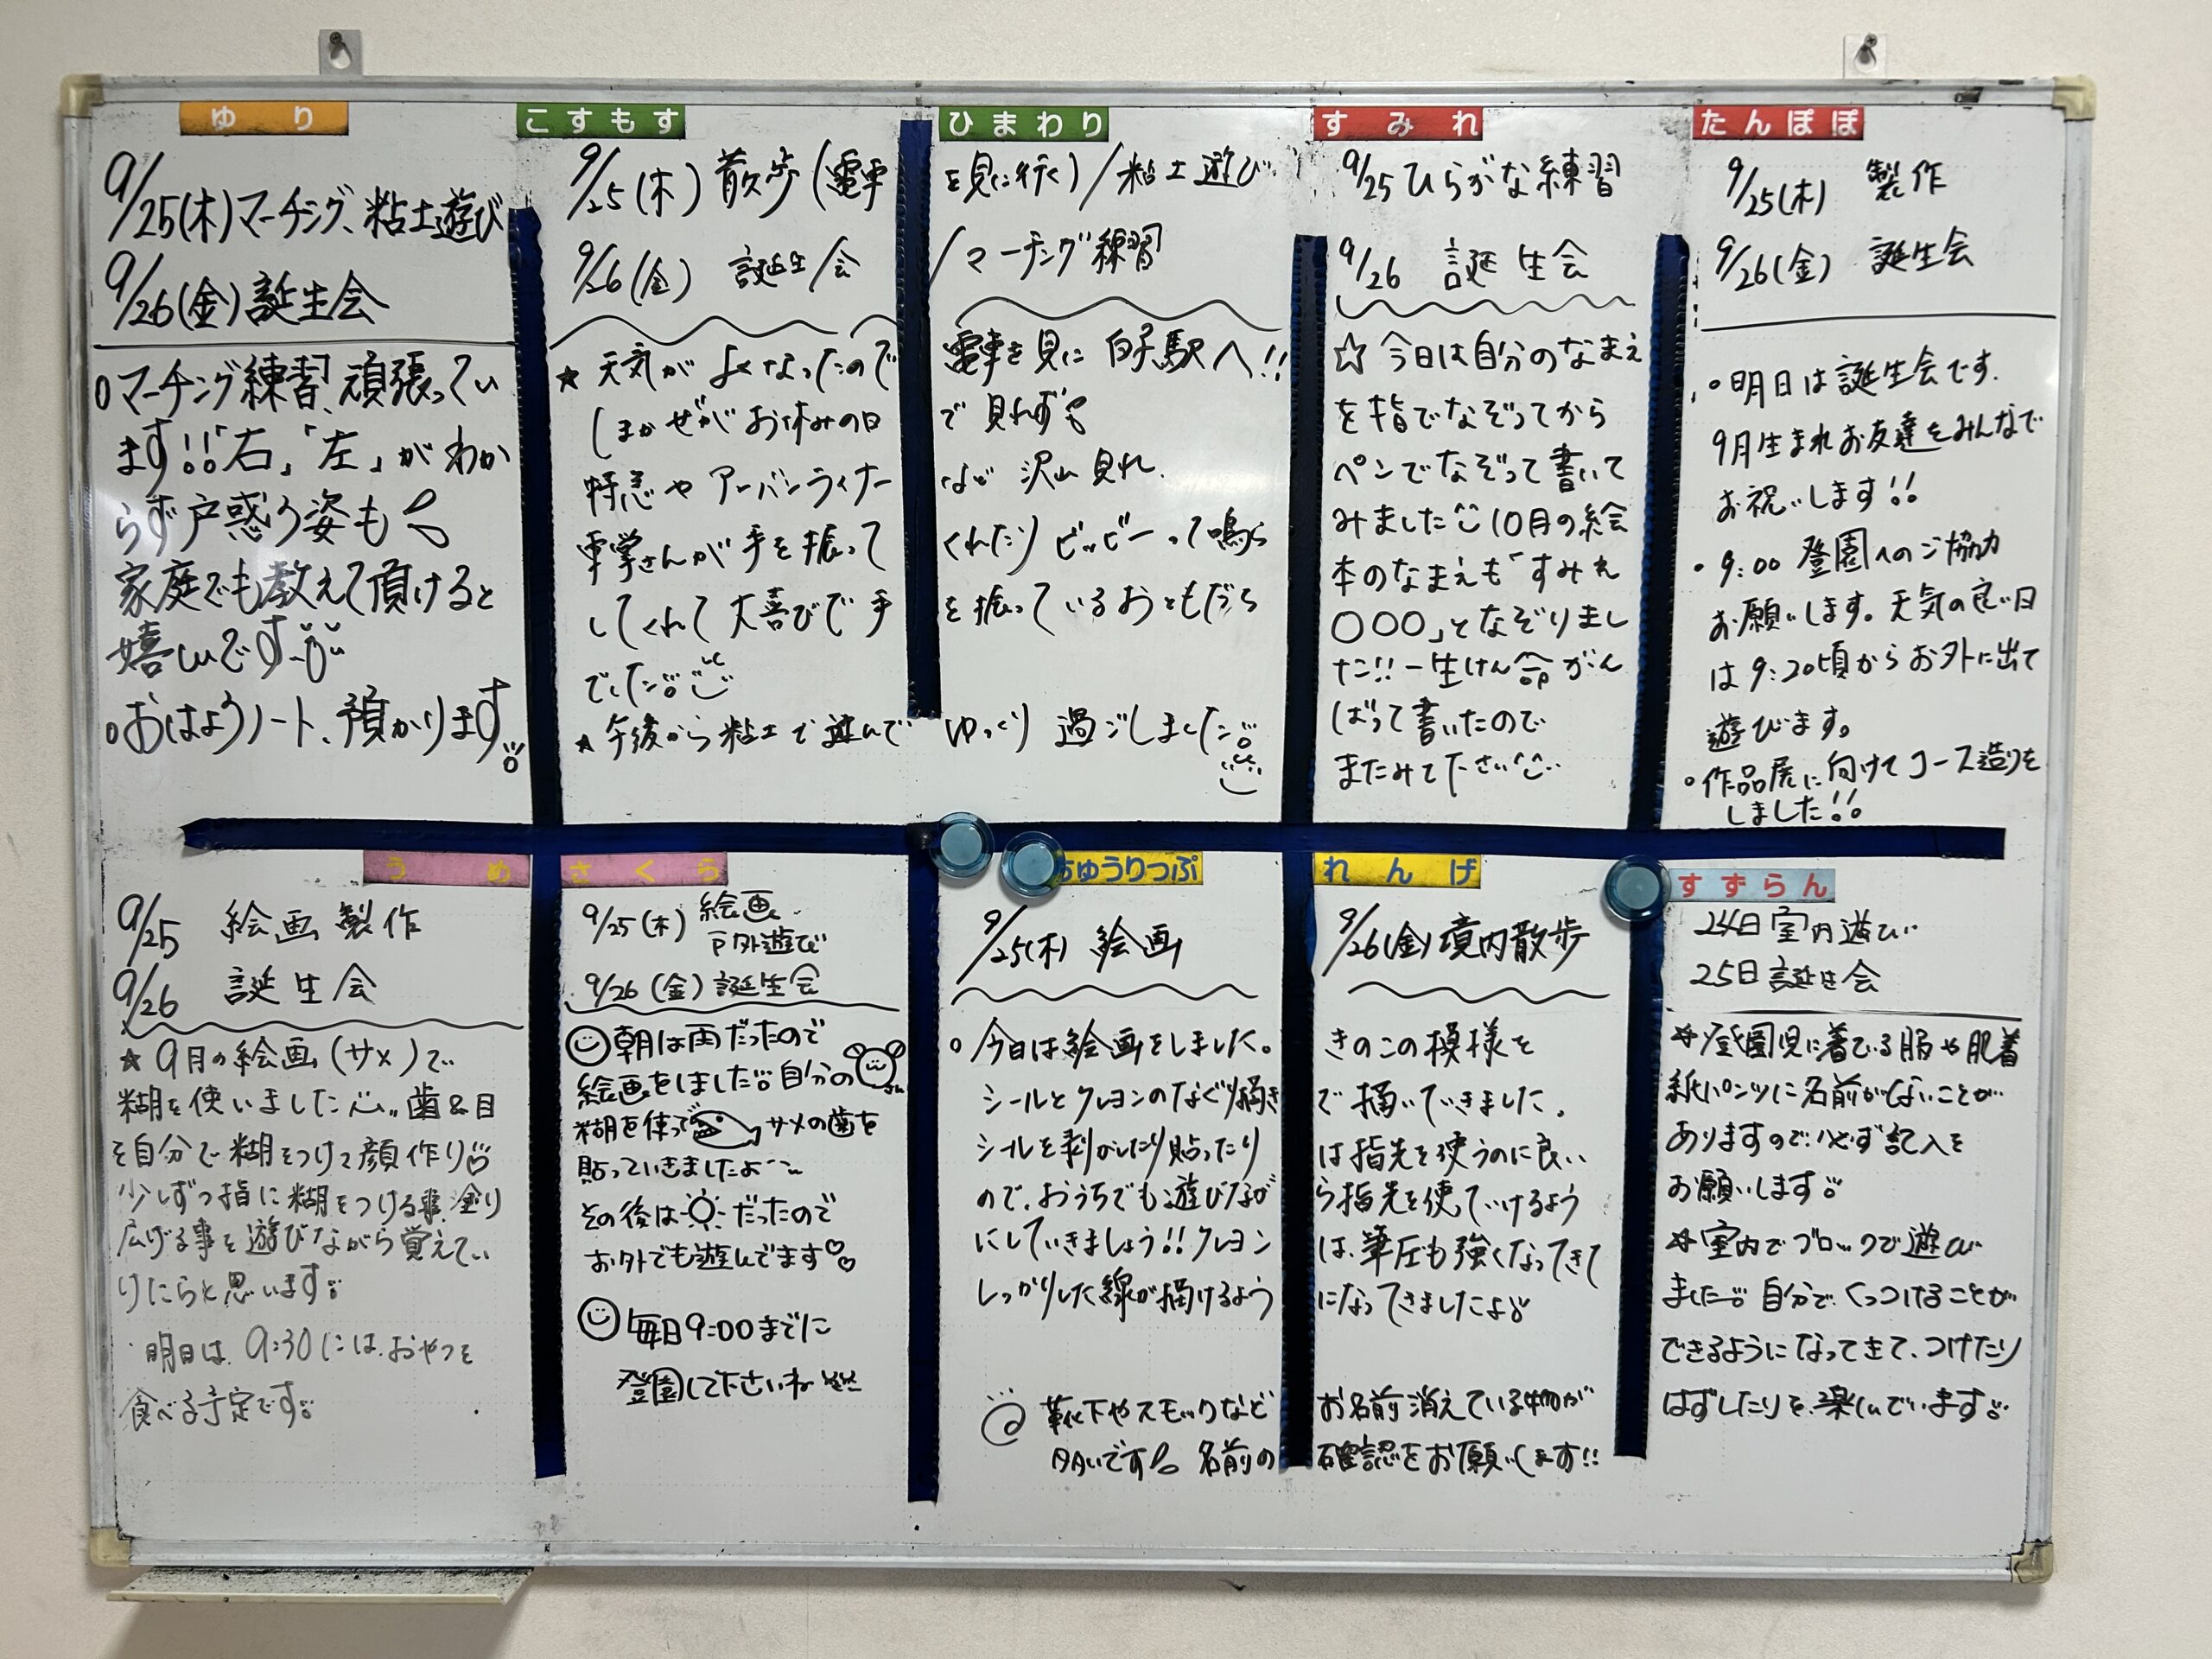 ゆり
9/25(木)マーチング、粘土遊び
9/26(金)誕生会
○マーチング練習、頑張ってい
ます!!「右」「左」がわか
らず戸惑う姿も
家庭でも教えて頂けると
嬉しいです
○おはようノート、預かります
こすもす
ひまわり
9/25(木) 散歩(電車を見に行く)/粘土遊び
/マーチング練習
9/26(金) 誕生会
★ 天気がよくなったので 電車を見に 白子駅へ!!
しまかぜがお休みの日で 見れずも
特急やアーバンライナーなど 沢山見れ、
車掌さんが手を振ってくれたり ピッピーって鳴ら
してくれて大喜びで手を振っているおともだち
でした
★ 午後から粘土で遊んで ゆっくり 過ごしました
すみれ
9/25 ひらがな練習
9/26 誕生会
☆ 今日は自分のなまえ
を指でなぞってから
ペンでなぞって書いて
みました 10月の絵
本のなまえも「すみれ
○○○」となぞりまし
た!!一生けん命がん
ばって書いたので
またみて下さい
たんぽぽ
9/25(木) 製作
9/26(金) 誕生会
○明日は誕生会です.
9月生まれお友達をみんなで
お祝いします!!
・9:00 登園へのご協力
お願いします。天気の良い日
は9:20頃からお外に出て
遊びます。
○作品展に向けてコース造りを
しました!!
うめ
9/25 絵画製作
9/26 誕生会
★ 9月の絵画(サメ)で
糊を使いました 歯&目
を自分で糊をつけて顔作り
少しずつ指に糊をつける事、塗り
広げる事を遊びながら覚えてい
けたらと思います
明日は、9:30には、おやつを
食べる予定です
さくら
9/25(木) 絵画、
戸外遊び
9/26(金) 誕生会
朝は雨だったので
絵画をしました 自分の
糊を使って サメの歯を
貼っていきましたよ〜
その後は だったので
お外でも遊んでます♡♡
毎日9:00までに
登園して下さいね
ちゅうりっぷ
れんげ
9/25(木) 絵画
9/26(金) 境内散歩
○今日は絵画をしました。 きのこの模様を
シールとクレヨンのなぐり描きで描いていきました。
シールを剥がしたり貼ったりは指先を使うのに良い
ので、おうちでも遊びながら指先を使っていけるよう
にしていきましょう!!クレヨンは、筆圧も強くなってきて
しっかりした線が描けるようになってきましたよ
靴下やスモックなどお名前消えている物が
多いです 名前の確認をお願いします!!
すずらん
24日 室内遊び
25日 誕生会
☆登園児に着ている服や肌着
紙パンツに名前がないことが
ありますので必ず記入を
お願いします
☆室内でブロックで遊び
ました 自分でくっつけることが
できるようになってきて、つけたり
はずしたりを楽しんでいます